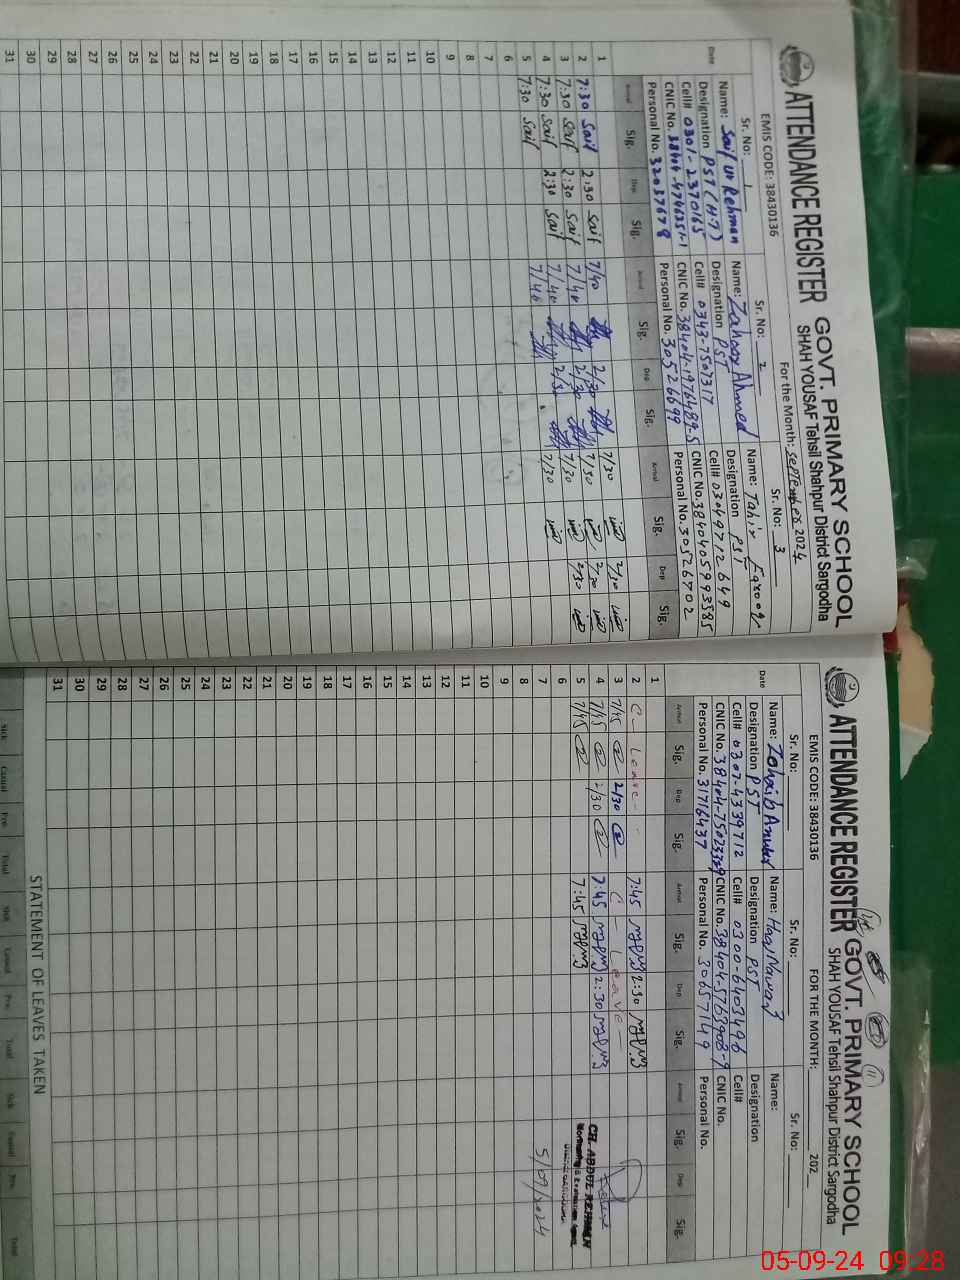 ATTENDANCE REGISTER GOVT. PRIMARY SCHOOL
SHAH YOUSAF Tehsil Shahpur District Sargodha
EMIS CODE: 38430136 For the Month: September 2024
Sr. No: 1 Sr. No: 2 Sr. No: 3
Name: Saif ur Rehman Name: Zahoor Ahmed Name: Tahir Farooq
Date Designation PST (H.T) Designation PST Designation PST
Cell# 0301-2370165 Cell# 0343-7507317 Cell# 03049712649
CNIC No. CNIC No. 38404-1976489-5 CNIC No. 3840405993585
Personal No. 32037678 Personal No. 30526699 Personal No. 30526702
Arrival Sig. Dep Sig. Arrival Sig. Dep Sig. Arrival Sig. Dep Sig.
1
2 7:30 Saif 2:30 Saif 7/40 2/30 7/30 2/30
3 7:30 Saif 2:30 Saif 7/40 2/30 7/30 2/30
4 7:30 Saif 2:30 Saif 7/40 2/30 7/30 2/30
5 7:30 Saif 7/40 7/30
6
7
8
9
10
11
12
13
14
15
16
17
18
19
20
21
22
23
24
25
26
27
28
29
30
31
ATTENDANCE REGISTER GOVT. PRIMARY SCHOOL
SHAH YOUSAF Tehsil Shahpur District Sargodha
EMIS CODE: 38430136 FOR THE MONTH: 202
Sr. No: Sr. No: Sr. No:
Name: Zohaib Name: Haq Nawaz Name:
Date Designation PST Designation PST Designation
Cell# 0307-4339712 Cell# 0300-6403496 Cell#
CNIC No. 38404-7502332-9 CNIC No. 38404-5763908-9 CNIC No.
Personal No. 31716437 Personal No. 30657149 Personal No.
Arrival Sig. Dep Sig. Arrival Sig. Dep Sig. Arrival Sig. Dep Sig.
1
2 C - Leave - 7:45 2:30
3 7/45 2/30 C - Leave -
4 7/45 2/30 7:45 2:30
5 7/45 7:45
6
7
8
9
10
11
12
13
14
15
16
17
18
19
20
21
22
23
24
25
26
27
28
29
30
31
CH. ABDUL REHMAN
5/09/2024
STATEMENT OF LEAVES TAKEN
Sick Casual Pre. Total Sick Casual Pre. Total Sick Casual Pre. Total
05-09-24 09:28